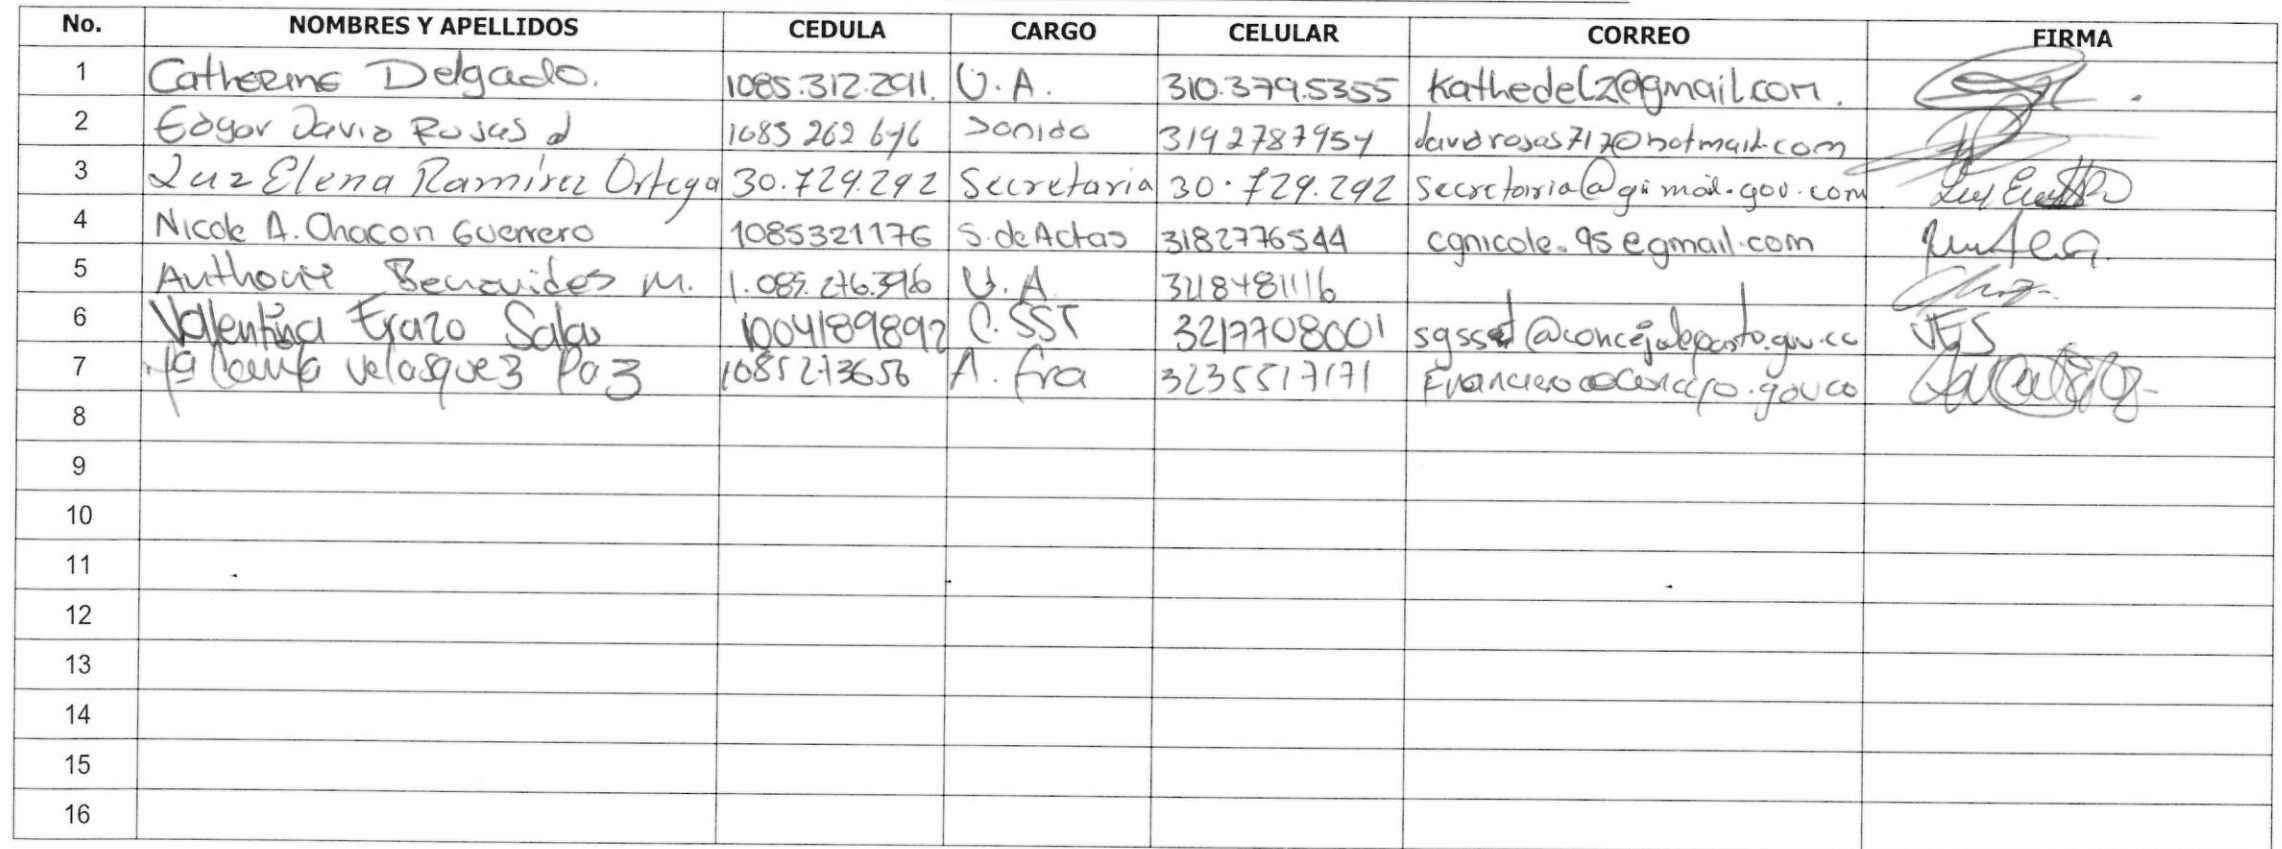 No. NOMBRES Y APELLIDOS CEDULA CARGO CELULAR CORREO FIRMA
1 Catherine Delgado. 1085.312.291. U.A. 310.379.5355 kathedelz@gmail.com.
2 Edgar David Rosas d 1085 262 646 Sonido 3192787954 davidrosas717@hotmail.com
3 Luz Elena Ramírez Ortega 30.729.292 Secretaria 30.729.292 secretaria@gimail.gov.com
4 Nicole A. Chacon Guerrero 1085321176 S. de Actas 3182776544 cgnicole.95@gmail.com
5 Benavides M. 1.085.276.396 U.A 3218481116
6 Valentina Erazo Salas 1004189892 C. SST 3217708001 VES
7 Velasquez Paz 1085273656 A. fra 3235517171
8
9
10
11
12
13
14
15
16